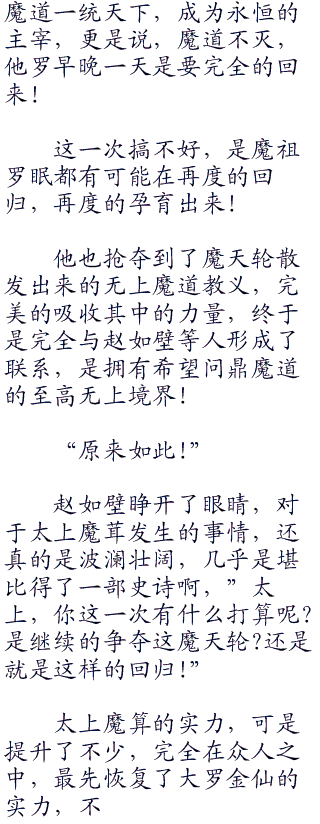 魔道一统天下，成为永恒的
主宰，更是说，魔道不灭，
他罗早晚一天是要完全的回
来！
这一次搞不好，是魔祖
罗眠都有可能在再度的回
归，再度的孕育出来！
他也抢夺到了魔天轮散
发出来的无上魔道教义，完
美的吸收其中的力量，终于
是完全与赵如壁等人形成了
联系，是拥有希望问鼎魔道
的至高无上境界！
“原来如此！”
赵如壁睁开了眼睛，对
于太上魔茸发生的事情，还
真的是波澜壮阔，几乎是堪
比得了一部史诗啊，”太
上，你这一次有什么打算呢？
是继续的争夺这魔天轮？还是
就是这样的回归！”
太上魔算的实力，可是
提升了不少，完全在众人之
中，最先恢复了大罗金仙的
实力，不